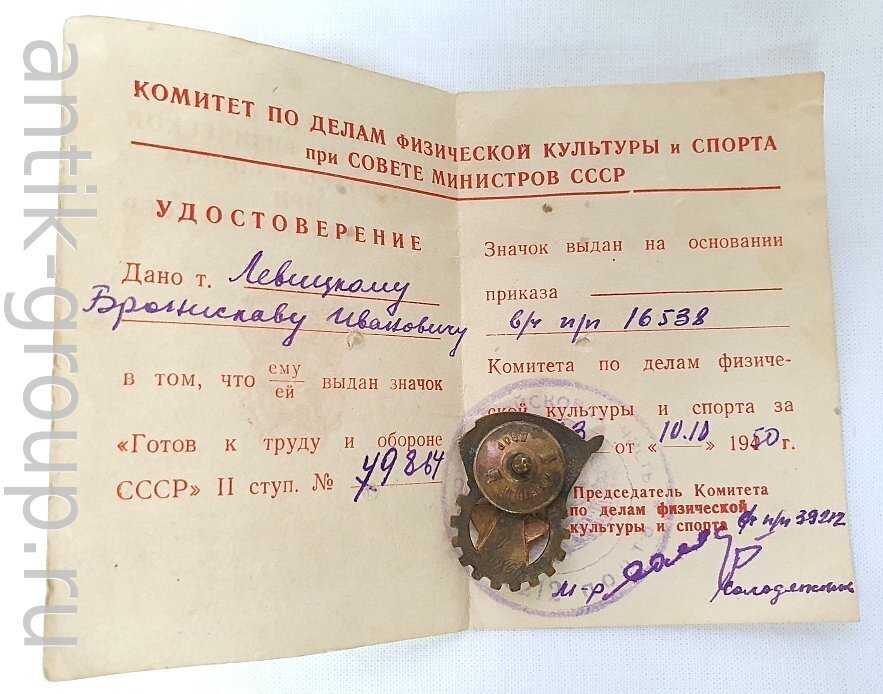 КОМИТЕТ ПО ДЕЛАМ ФИЗИЧЕСКОЙ КУЛЬТУРЫ и СПОРТА
при СОВЕТЕ МИНИСТРОВ СССР
УДОСТОВЕРЕНИЕ
Дано т. Левицкому
Брониславу Ивановичу
в том, что ему/ей выдан значок
«Готов к труду и обороне
СССР» II ступ. № У9864
Значок выдан на основании
приказа
в/ч п/п 16538
Комитета по делам физиче-
ской культуры и спорта за
от «10.10» 1950 г.
Председатель Комитета
по делам физической
культуры и спорта в/ч п/п 39212
М-р
antik-group.ru